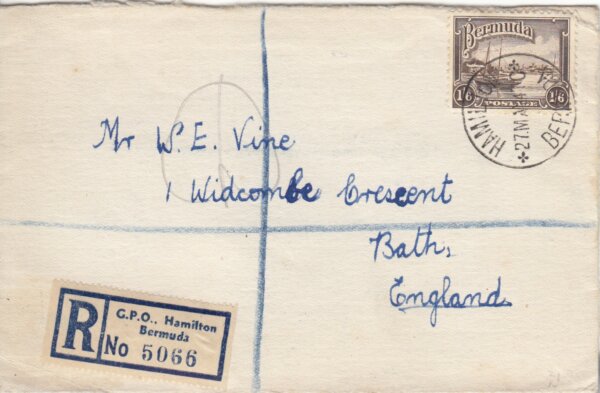 Bermuda
1/6 POSTAGE 1/6
HAMIL
27 MA
BER
Mr W. E. Vine
1 Widcombe Crescent
Bath,
England.
R
G.P.O., Hamilton
Bermuda
No 5066